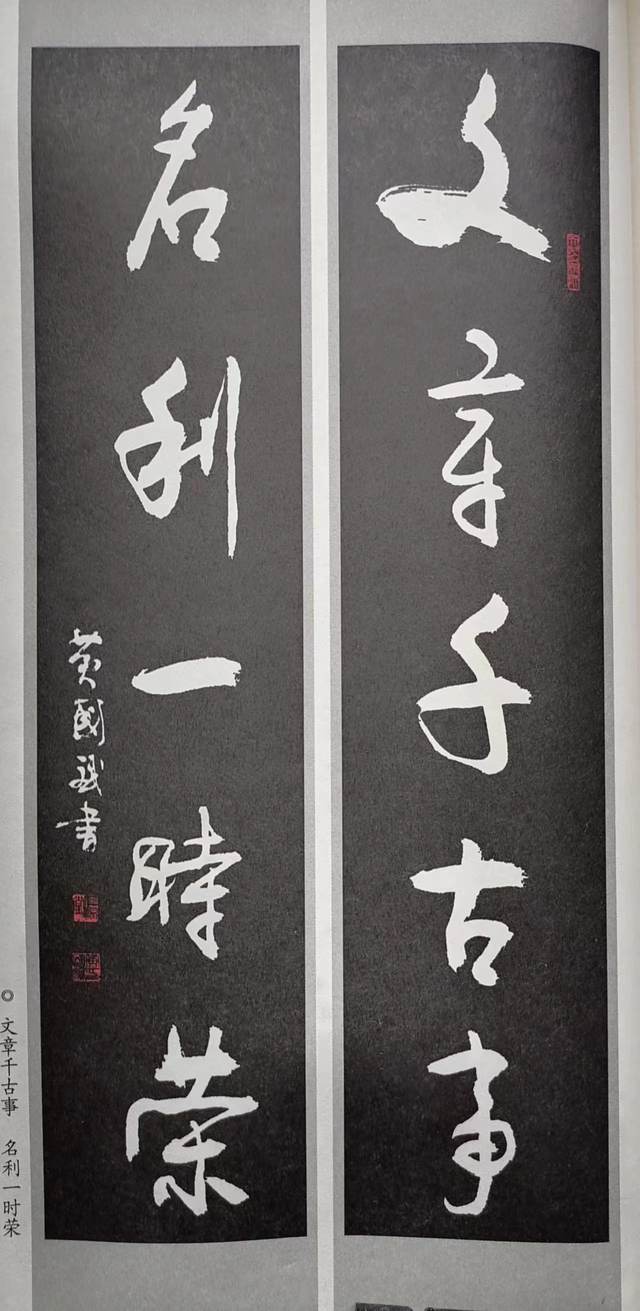 文章千古事
名利一時荣
黄國武書
◎ 文章千古事 名利一时荣